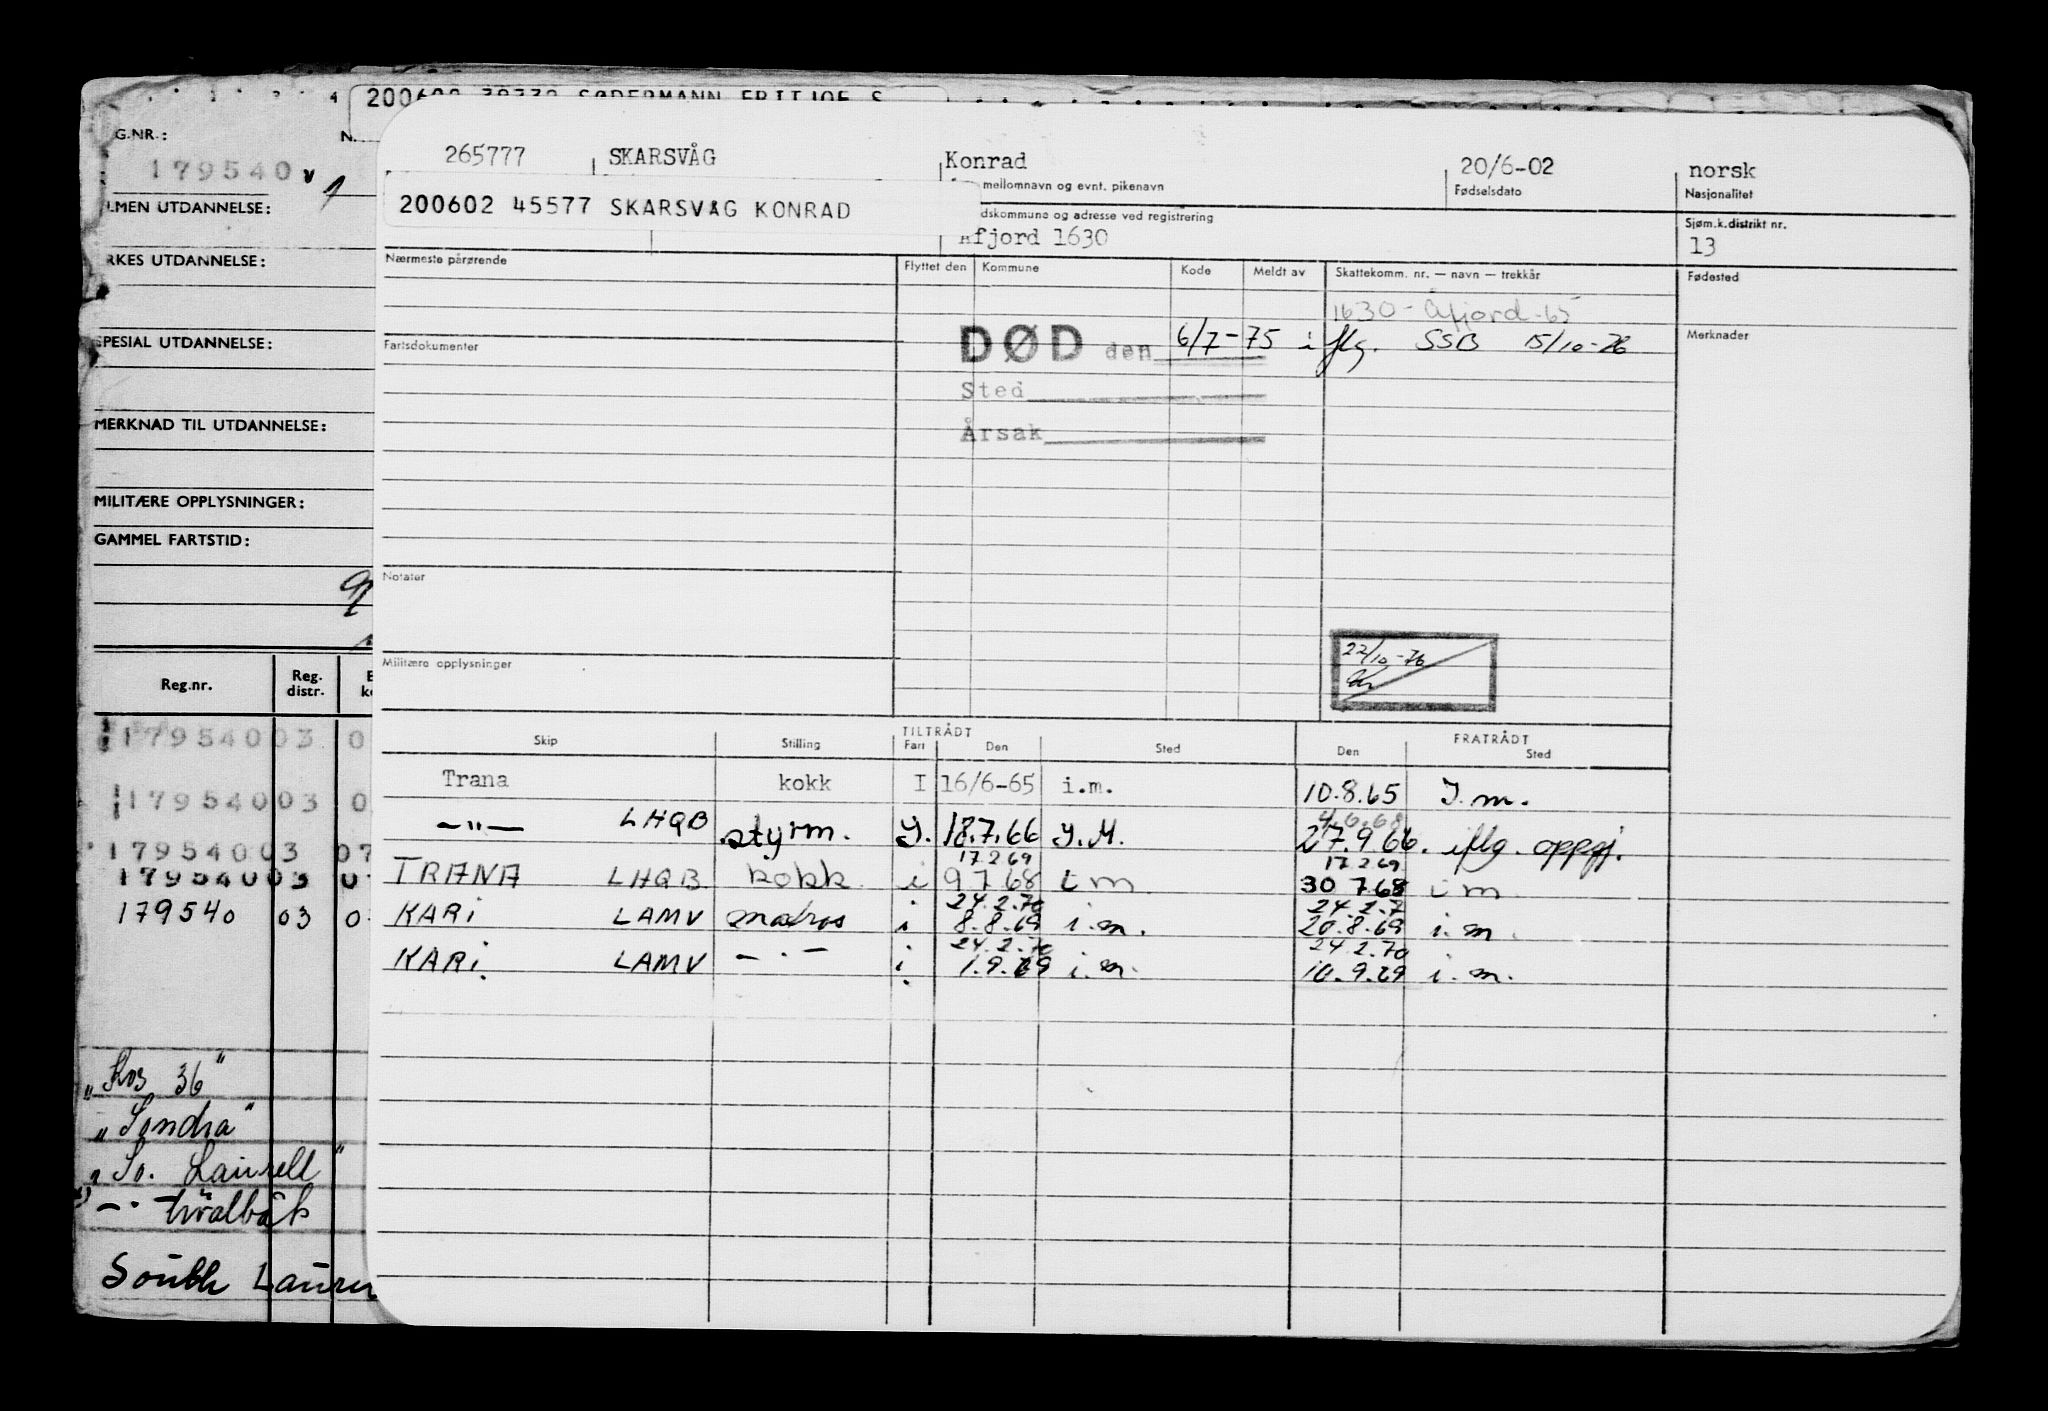 SØDERMANN FRITJOF S
265777 SKARSVÅG Konrad 20/6-02 norsk
mellomnavn og evnt. pikenavn Fødselsdato Nasjonalitet
200602 45577 SKARSVÅG KONRAD
dskommune og adresse ved registrering Sjøm.k.distrikt nr.
fjord 1630 13
Nærmeste pårørende Flyttet den Kommune Kode Meldt av Skattekomm. nr. — navn — trekkår Fødested
1630 - Åfjord - 65
DØD den 6/7-75 i flg. SSB 15/10-76 Merknader
Fartsdokumenter
Sted
Årsak
Notater
22/10-76
Militære opplysninger
TILTRÅDT FRATRÅDT
Skip Stilling Fart Den Sted Den Sted
Trana kokk I 16/6-65 i.m. 10.8.65 I.m.
4.6.68
—"— LHQB styrm. I. 18.7.66 I.M. 27.9.66. iflg. oppgj.
17 2 69 17 2 69
TRANA LHQB kokk i 9 7 68 i m 30 7.68 i m
24.2.70 24.2.7
KARi LAMV matros i 8.8.69 i.m. 20.8.69 i.m.
24.2.70 24.2.70
KARi LAMV —·— i 1.9.69 i.m. 10.9.69 i.m.
G.NR.: N.
179540 v
LMEN UTDANNELSE:
RKES UTDANNELSE:
SPESIAL UTDANNELSE:
MERKNAD TIL UTDANNELSE:
MILITÆRE OPPLYSNINGER:
GAMMEL FARTSTID:
Reg.nr. Reg. distr.
179540 03 0
179540 03 0
179540 03 07
179540 03 0
179540 03 0
"Kos 36"
"Sondra"
"So. Laurell"
—·— hvalbåt
South Laure